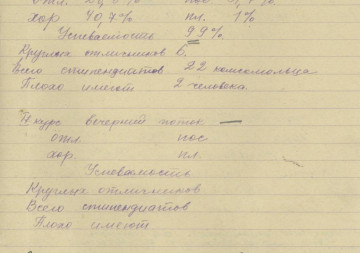 хор 40,7% пл. 1%
Успеваемость 99%
Круглых отличников 6.
Всего стипендиатов 22 комсомольца
Плохо имеют 2 человека.
курс вечерний поток —
отл. пос.
хор. пл.
Успеваемость
Круглых отличников
Всего стипендиатов
Плохо имеют